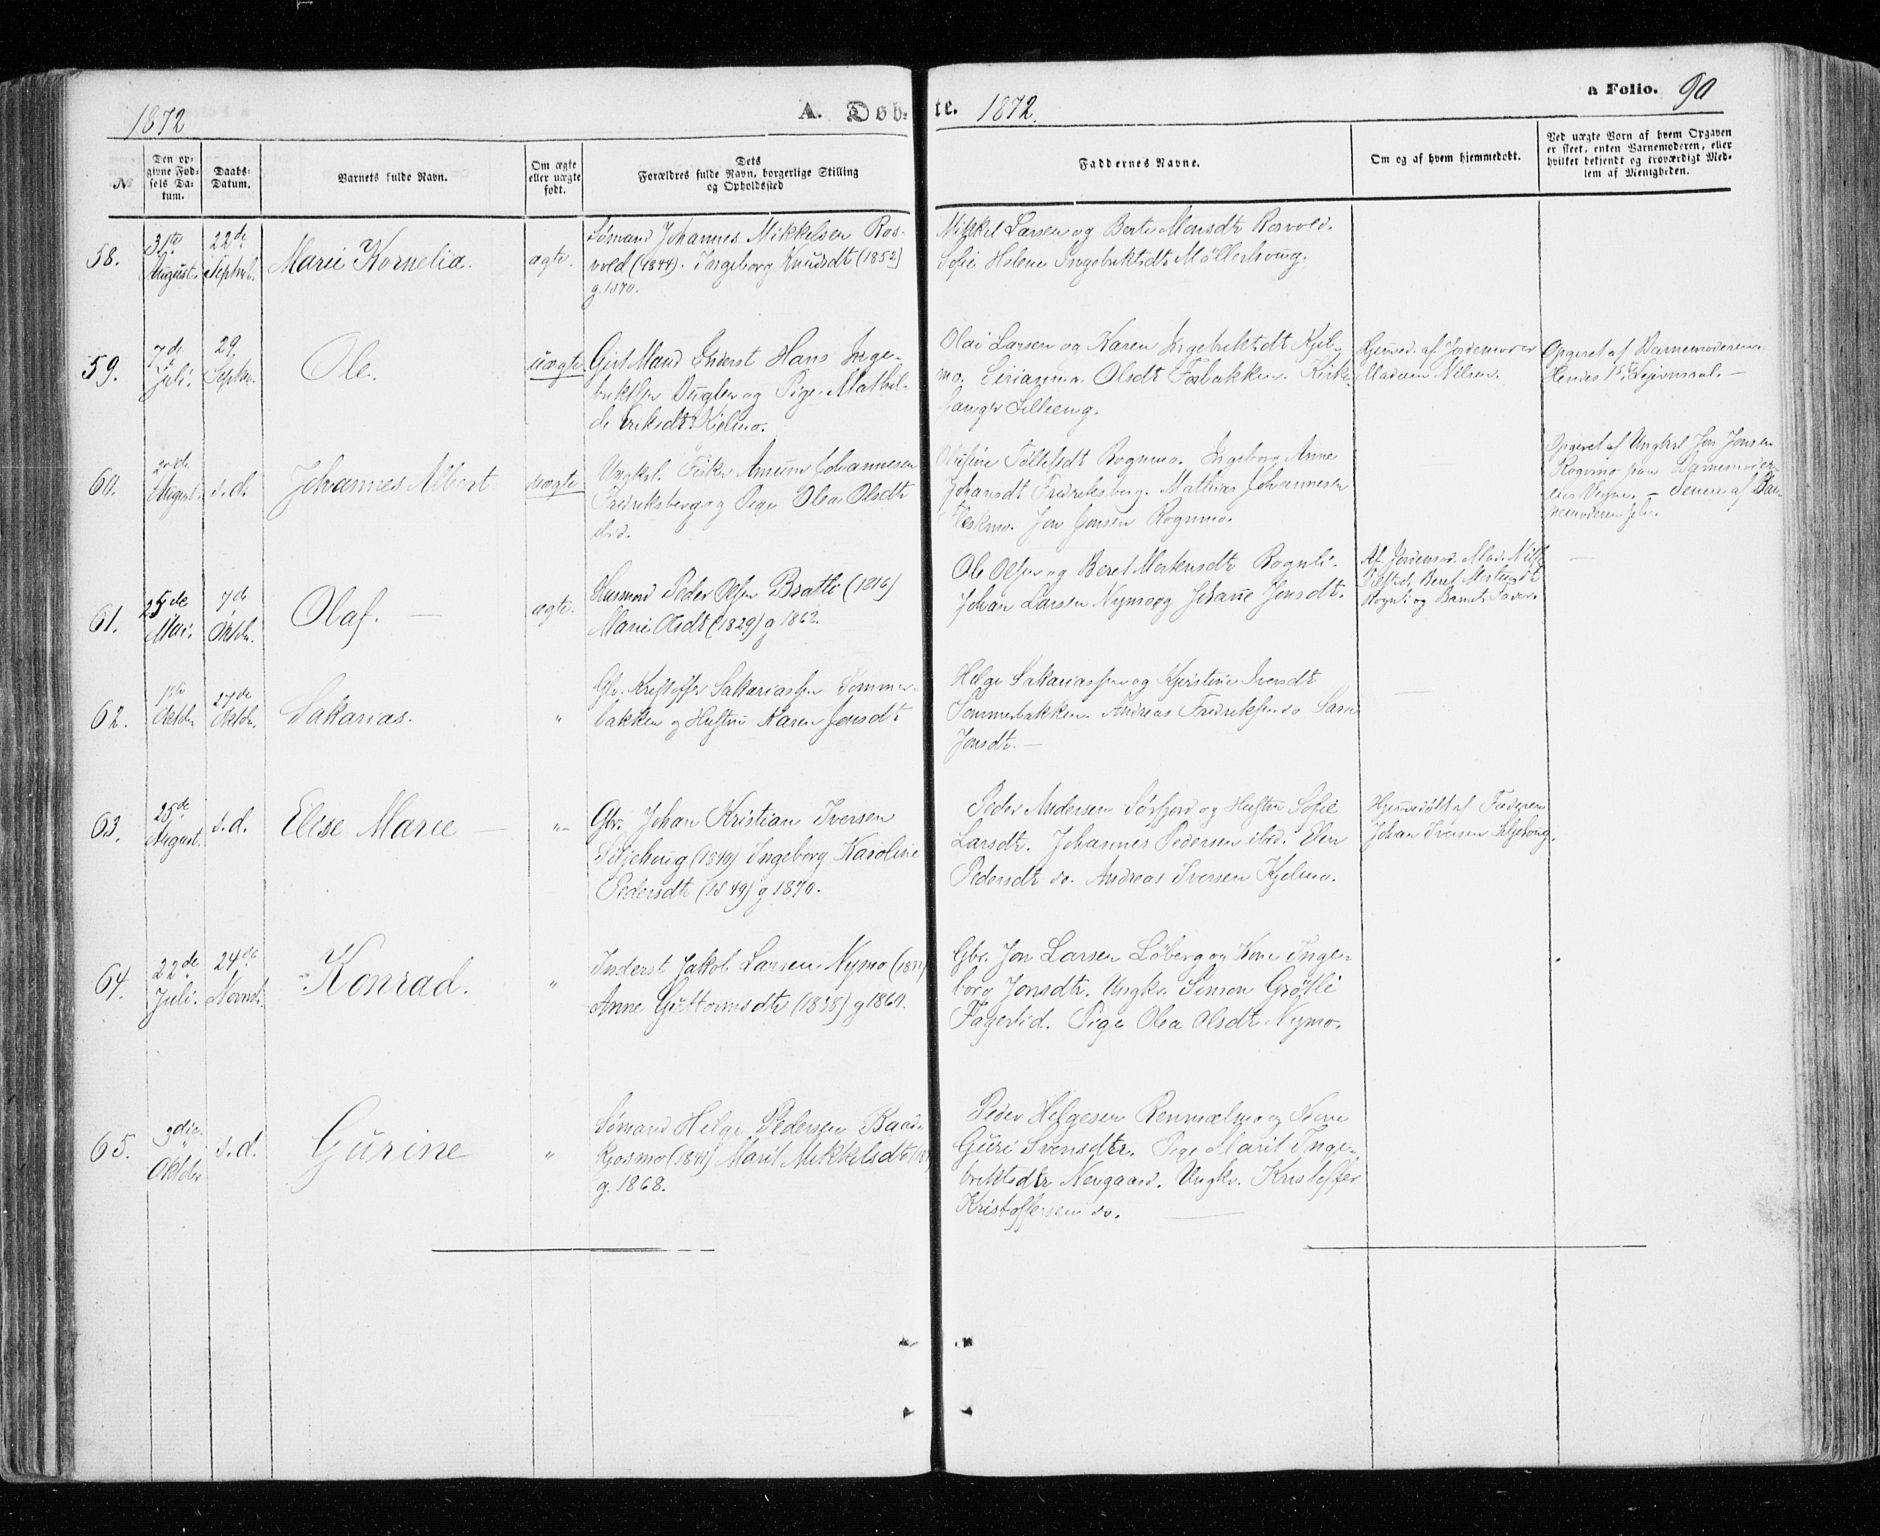 1872
A. Døb-
te. 1872.
a Folio. 90
№
Den op-
givne Fød-
sels Da-
tum.
Daabs-
Datum.
Barnets fulde Navn.
Om ægte
eller uægte
født.
Dets
Forældres fulde Navn, borgerlige Stilling
og Opholdssted
Faddernes Navne.
Om og af hvem hjemmedøbt.
Ved uægte Børn af hvem Opgaven
er skeet, enten Barnemoderen, eller
hvilket bekjendt og troværdigt Med-
lem af Menigheden.
58.
31te
August.
22de
Septbr.
Marie Kornelia.
ægte.
Sømand Johannes Mikkelsen Ros-
vold (1844). Ingeborg Knudsdt (1852)
g. 1870.
Mikkel Larsen og Berte Monsdt Rosvold.
Sofie Helene Ingebriktsdt Møllerhoug.
59.
7de
Juli.
29
Septbr.
Ole.
uægte
Gift Mand Inderst Hans Inge-
briktsen og Pige Mathil-
de Eriksdt Kjelmo.
Olai Larsen og Karen Ingebriktsdt Kjel-
mo. Olsdt Fosbakken. Kirke-
sanger Lilleeng.
Hjemmed. af Jordemoder
Madam Nilsen.
Opgivet af Barnemoderen.
Hendes 1ste Leiermaal. —
60.
August.
s. d.
Johannes Albert
uægte
Ungkl. Fisker Johannesen
Fredriksberg og Pige Olea Olsdt
ibid.
Tollefsdt Rognmo. Ingeborg Anne
Johansdt Fredriksberg. Mathias Johannesen
Jon Jonsen Rognmo.
Opgivet af Ungkl Jon Jonsen
Rognmo paa Barnemoder-
ens Vegne. — Senere af Bar-
nemoderen selv.
61.
25de
Mai.
7de
Oktbr.
Olaf. —
ægte.
Husmand Peder Olsen Bratli (1816)
Marie Olsdt (1829) g 1862.
Ole Olsen og Beret Mortensdt Rognli.
Johan Larsen Nymo og Johanne Jonsdt.
Af Jordemod. Mad. Nilsen
Beret Mortensdt
Rognli og Barnets Fader.
62.
Oktbr
27de
Oktbr.
Sakarias.
"
Gbr. Kristoffer Sakariassen Sommer-
bakken og Hustru Karen Jonsdt
Helge Sakariassen og Kjerstine Iversdt
Sommerbakken. Andreas Fredriksen so Sara
Jonsdt. —
63.
25de
August.
s. d.
Elise Marie —
"
Gbr. Johan Kristian Iversen
Siljehaug (1840) Ingeborg Karoline
Pedersdt (1849) g 1870.
Peder Andersen Sørfjord og Hustru Sofie
Larsdt. Johannes Pedersen ibid. Elen
Pedersdt so. Andreas Iversen Kjelmo.
Hjemmedøbt af Faderen
Johan Iversen Siljehoug.
64.
22de
Juli.
24de
Novbr.
Konrad.
"
Inderst Jakob Larsen Nymo
Anne Guttormsdt (1828) g 1860.
Gbr. Jon Larsen Løberg og Kone Inge-
borg Jonsdt. Ungkr. Simon Grøtli
Fagerlid. Pige Olea Olsdt Nymo.
65.
3die
Oktbr
s. d.
Gurine
"
Sømand Helge Pedersen Baad-
Marit Mikkelsdt
g. 1868.
Peder Helgesen Renmælmo og Kone
Guri Svensdtr. Pige Marit Inge-
briktsdtr Neugaard. Ungkr. Kristoffer
Kristoffersen so.